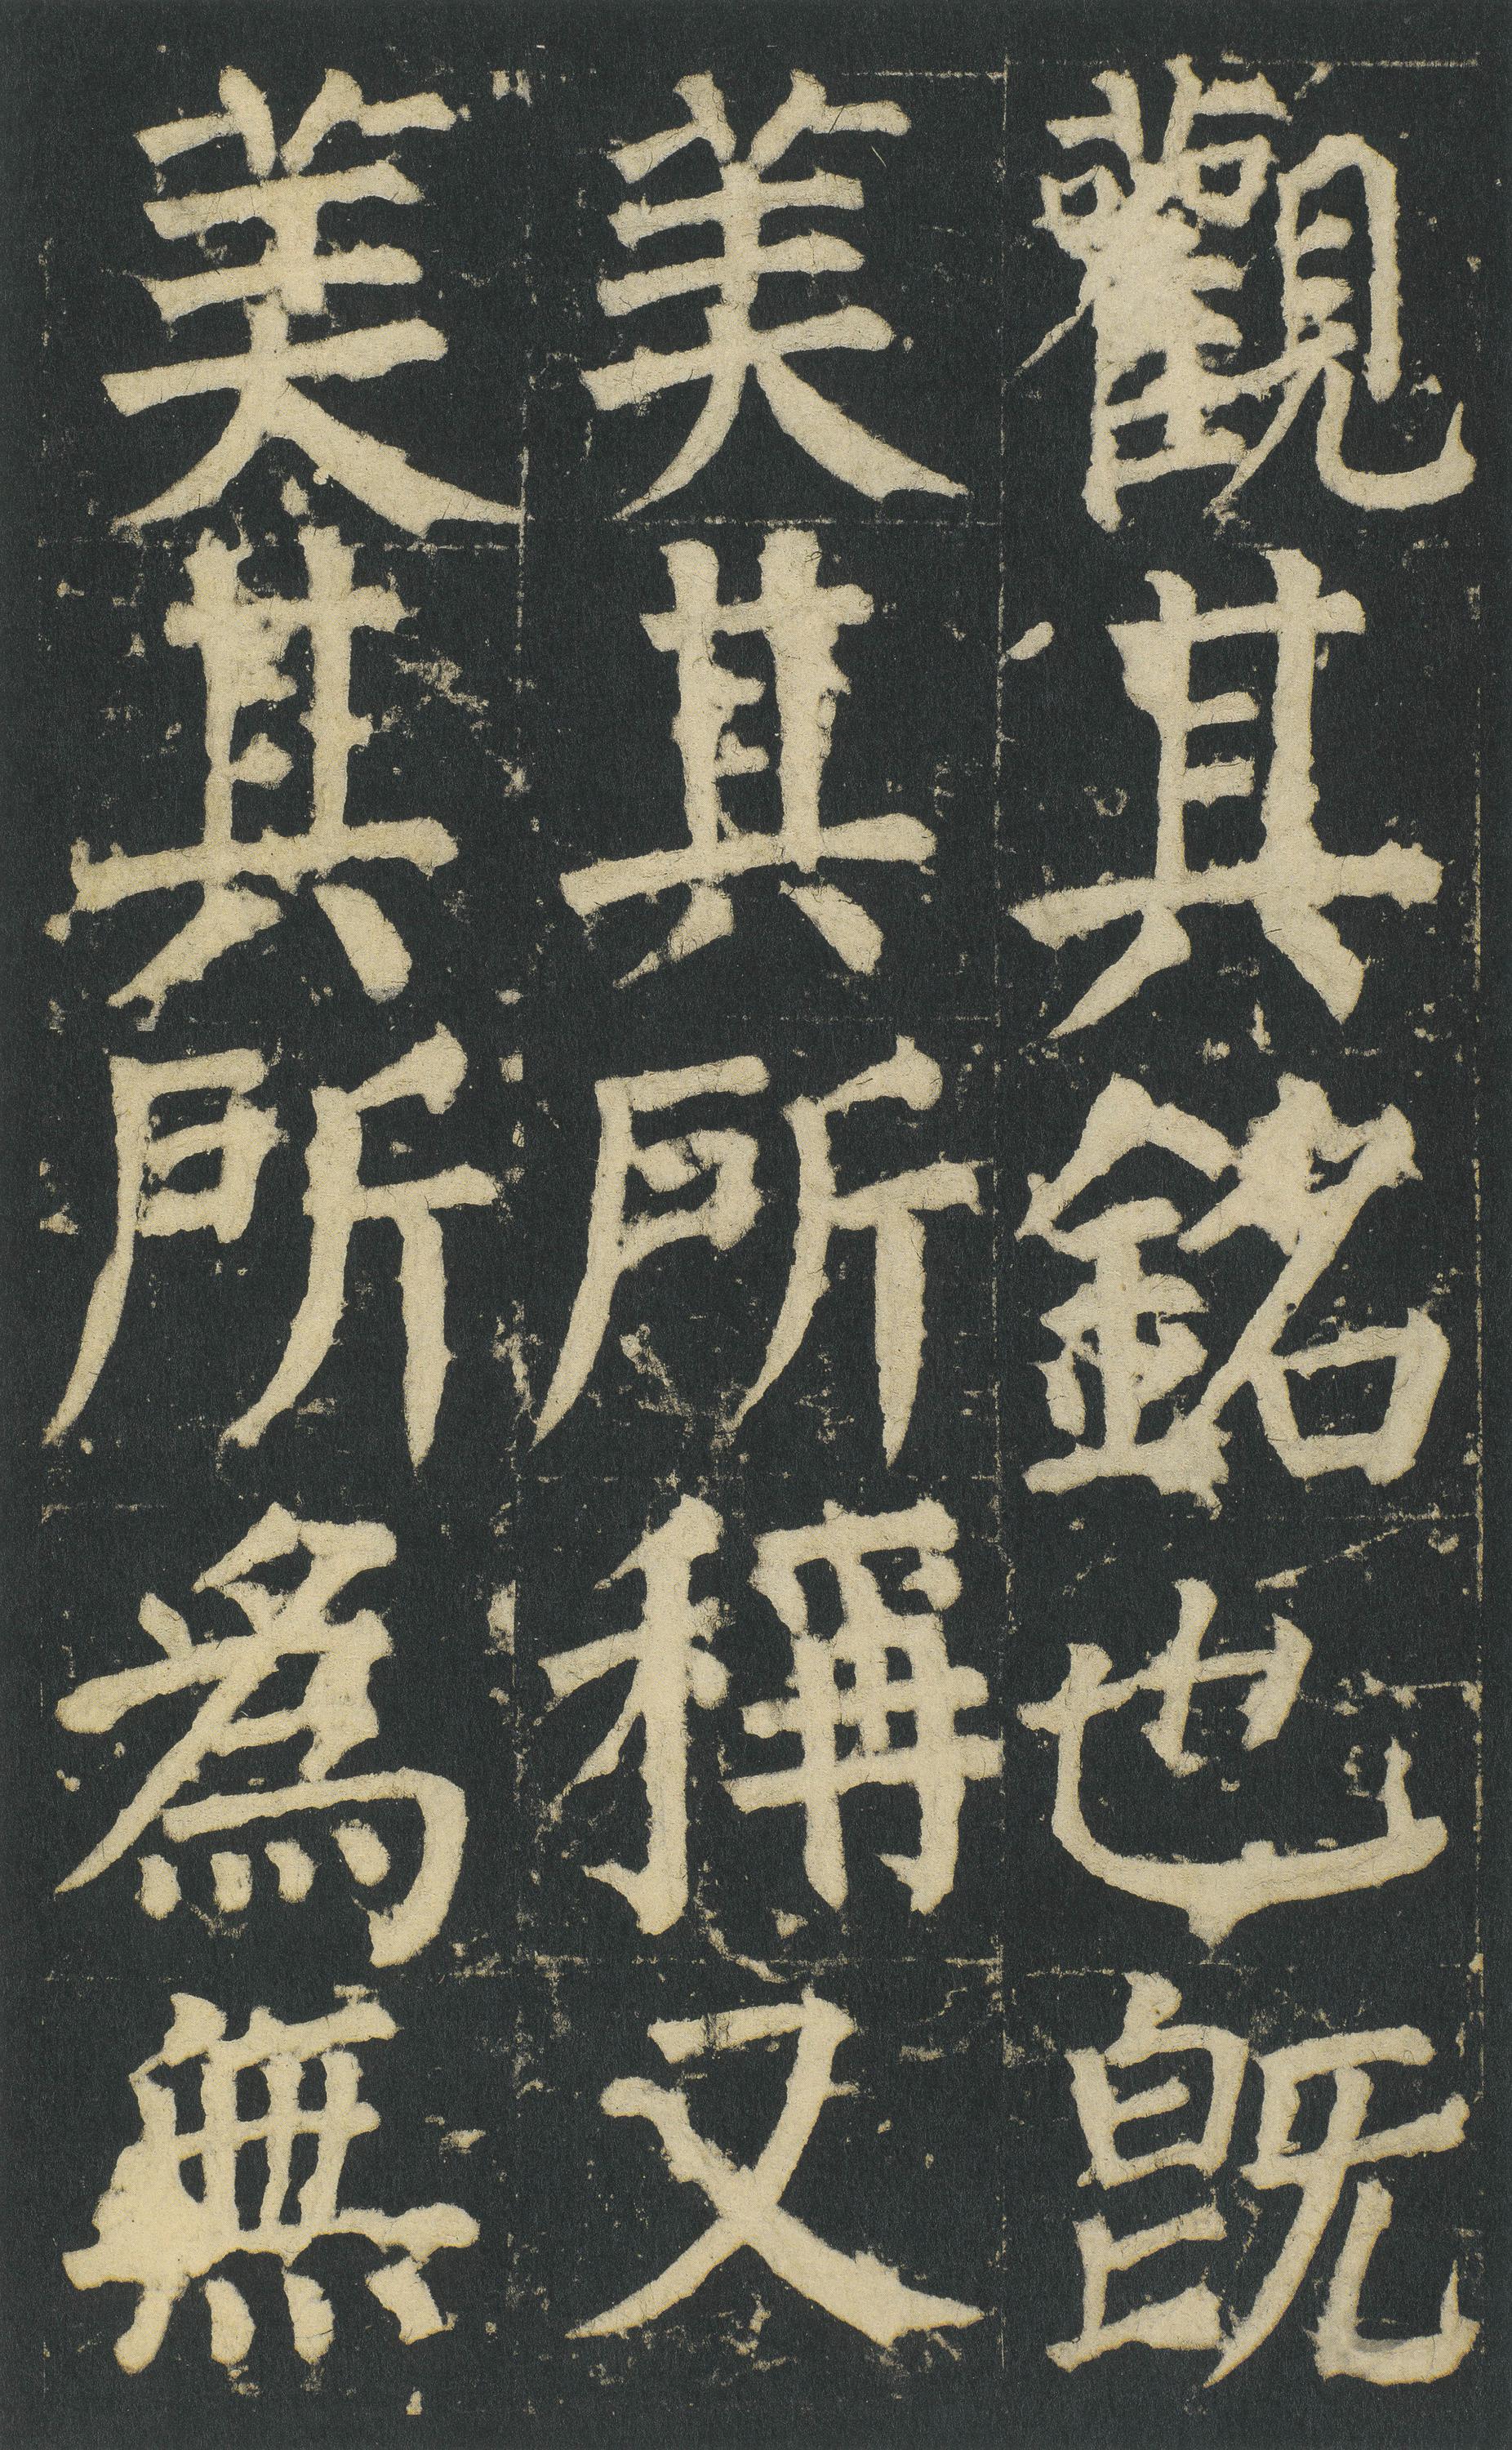 觀其銘也既
美其所稱又
美其所為無